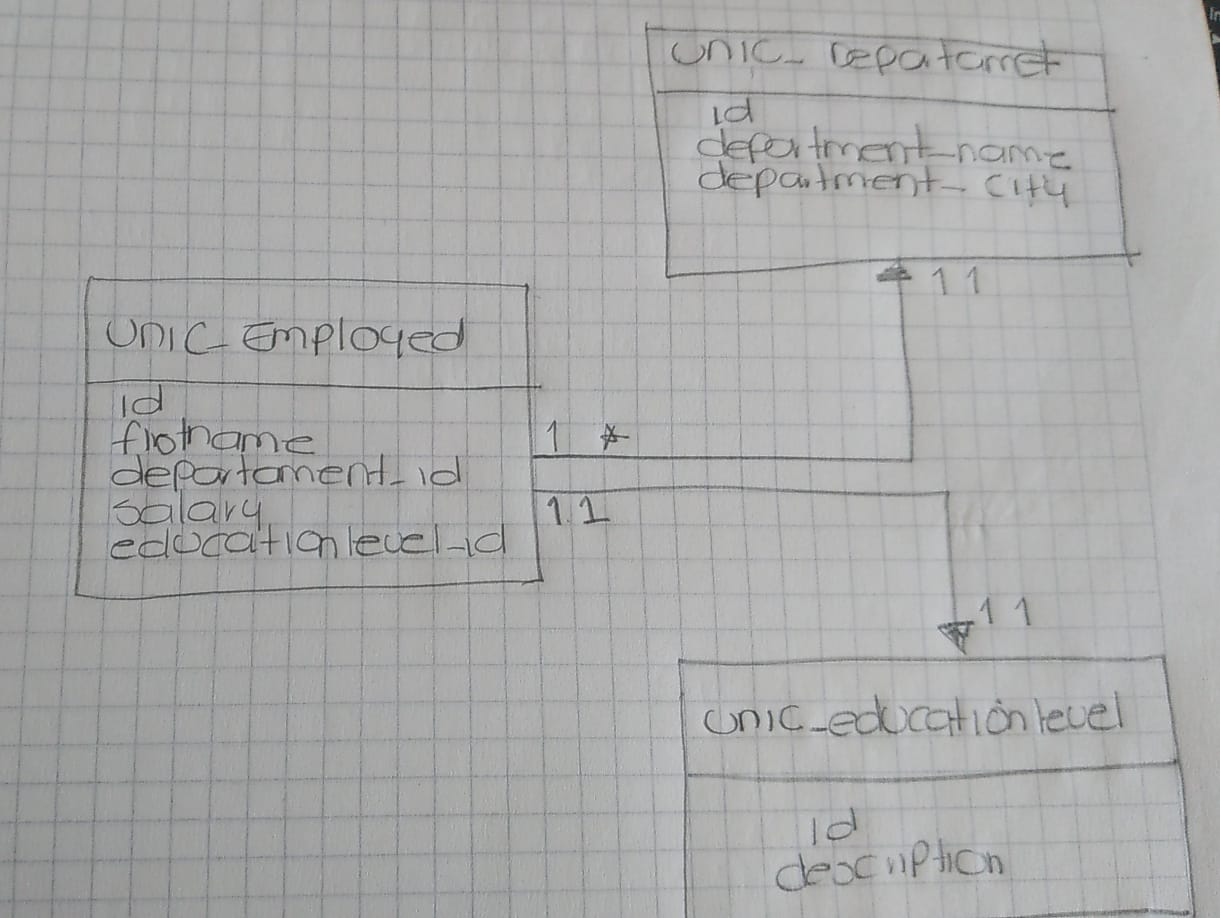 Unic_Depatamet
id
department_name
department_city
Unic_Employed
id
firstname
departament_id
salary
educationlevel_id
1 *
1 1
1 1
1 1
Unic_educationlevel
id
description